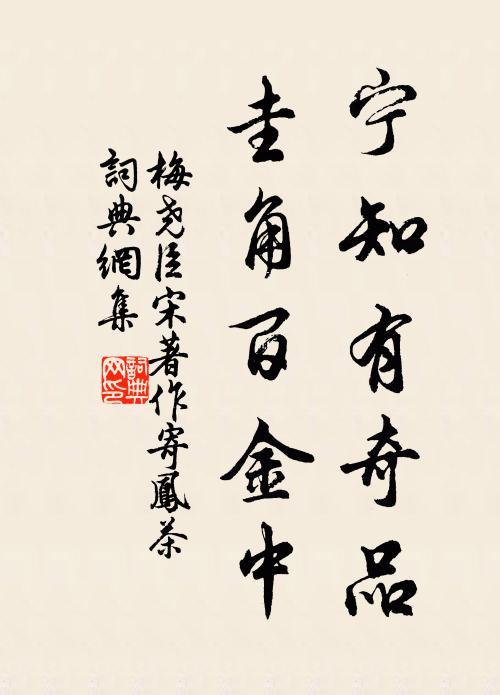 宁知有奇品
圭角百金中
梅尧臣宋著作寄鳳茶
詞典網集
詞典
网印